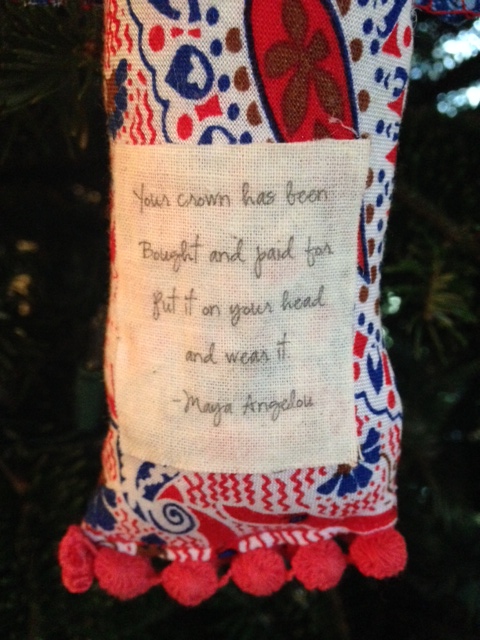 Your crown has been
Bought and paid for
Put it on your head
and wear it
-Maya Angelou